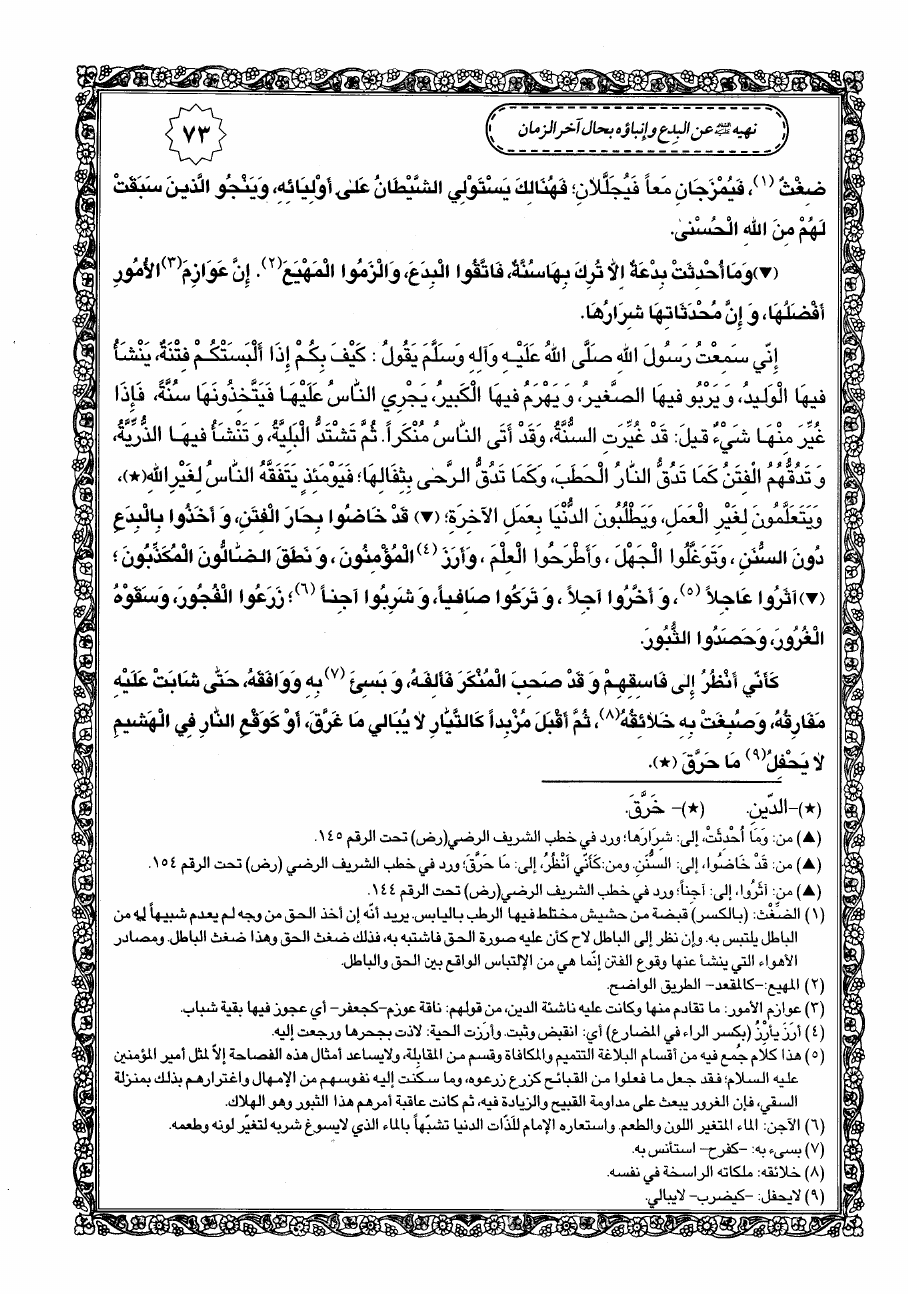 نهيه عليه السلام عن البدع وإنباؤه بحال آخر الزمان
٧٣
ضِغْثٌ (١)، فَيُمْزَجَانِ مَعاً فَيُجَلَّلاَنِ؛ فَهُنَالِكَ يَسْتَوْلِي الشَّيْطَانُ عَلى أَوْلِيَائِهِ، وَيَنْجُو الَّذينَ سَبَقَتْ
لَهُمْ مِنَ اللهِ الْحُسْنىٰ.
(▼)وَمَا أُحْدِثَتْ بِدْعَةٌ إِلاَّ تُرِكَ بِهَا سُنَّةٌ، فَاتَّقُوا الْبِدَعَ، وَالْزَمُوا الْمَهْيَعَ(٢). إِنَّ عَوَازِمَ(٣) الأُمُورِ
أَفْضَلُهَا، وَ إِنَّ مُحْدَثَاتِهَا شِرَارُهَا.
إِنّي سَمِعْتُ رَسُولَ اللهِ صَلَّى اللهُ عَلَيْهِ وَآلِهِ وَسَلَّمَ يَقُولُ : كَيْفَ بِكُمْ إِذَا أَلْبَسَتْكُمْ فِتْنَةٌ، يَنْشَأُ
فيهَا الْوَليدُ، وَ يَرْبُو فيهَا الصَّغيرُ، وَ يَهْرَمُ فيهَا الْكَبيرُ، يَجْرِي النَّاسُ عَلَيْهَا فَيَتَّخِذُونَهَا سُنَّةً، فَإِذَا
غُيِّرَ مِنْهَا شَيْءٌ قيلَ: قَدْ غُيِّرَتِ السُّنَّةُ، وَقَدْ أَتَى النَّاسُ مُنْكَراً. ثُمَّ تَشْتَدُّ الْبَلِيَّةُ، وَ تَنْشَأُ فيهَا الذُّرِّيَّةُ،
وَ تَدُقُّهُمُ الْفِتَنُ كَمَا تَدُقُّ النَّارُ الْحَطَبَ، وَكَمَا تَدُقُّ الرَّحى بِثِفَالِهَا؛ فَيَوْمَئِذٍ يَتَفَقَّهُ النَّاسُ لِغَيْرِ اللهِ(★)،
وَيَتَعَلَّمُونَ لِغَيْرِ الْعَمَلِ، وَيَطْلُبُونَ الدُّنْيَا بِعَمَلِ الآخِرَةِ؛ (▼) قَدْ خَاضُوا بِحَارَ الْفِتَنِ، وَ أَخَذُوا بِالْبِدَعِ
دُونَ السُّنَنِ ، وَتَوَغَّلُوا الْجَهْلَ ، وَأَطْرَحُوا الْعِلْمَ ، وَأَرَزَ (٤) الْمُؤْمِنُونَ ، وَ نَطَقَ الضَّالُّونَ الْمُكَذِّبُونَ ؛
(▼) آثَرُوا عَاجِلاً (٥)، وَ أَخَّرُوا آجِلاً ، وَ تَرَكُوا صَافِياً، وَ شَرِبُوا آجِناً (٦)؛ زَرَعُوا الْفُجُورَ، وَسَقَوْهُ
الْغُرُورَ، وَحَصَدُوا الثُّبُورَ.
كَأَنّي أَنْظُرُ إِلى فَاسِقِهِمْ وَ قَدْ صَحِبَ الْمُنْكَرَ فَأَلِفَهُ، وَ بَسِئَ (٧) بِهِ وَوَافَقَهُ، حَتَّى شَابَتْ عَلَيْهِ
مَفَارِقُهُ، وَصُبِغَتْ بِهِ خَلاَئِقُهُ(٨)، ثُمَّ أَقْبَلَ مُزْبِداً كَالتَّيَّارِ لاَ يُبَالي مَا غَرَّقَ، أَوْ كَوَقْعِ النَّارِ فِي الْهَشيمِ
لاَ يَحْفِلُ(٩) مَا حَرَّقَ (★).
(★)-الدّينِ. (★)- خَرَّقَ.
(▲) من: وَمَا أُحْدِثَتْ، إلى: شرَارهَا؛ ورد في خطب الشريف الرضي(رض) تحت الرقم ١٤٥.
(▲) من: قَدْ خَاضُوا، إلى: السُّنَنِ. ومن:كَأَنّي أَنْظُرُ، إلى: مَا حَرَّقَ؛ ورد في خطب الشريف الرضي (رض) تحت الرقم ١٥٤.
(▲) من: آثَرُوا، إلى: آجناً؛ ورد في خطب الشريف الرضي(رض) تحت الرقم ١٤٤.
(١) الضِّغْث: (بالكسر) قبضة من حشيش مختلط فيها الرطب باليابس. يريد أنّه إن أخذ الحق من وجه لم يعدم شبيهاً له من
الباطل يلتبس به. وإن نظر إلى الباطل لاح كأن عليه صورة الحق فاشتبه به، فذلك ضغث الحق وهذا ضغث الباطل. ومصادر
الأهواء التي ينشأ عنها وقوع الفتن إنّما هي من الإلتباس الواقع بين الحق والباطل.
(٢) المهيع:-كالمقعد- الطريق الواضح.
(٣) عوازم الأمور: ما تقادم منها وكانت عليه ناشئة الدين، من قولهم: ناقة عوزم-كجعفر- أي عجوز فيها بقية شباب.
(٤) أرَزَ يأرِزُ (بكسر الراء في المضارع) أي: انقبض وثبت. وأرزت الحية: لاذت بجحرها ورجعت إليه.
(٥) هذا كلام جُمع فيه من أقسام البلاغة التتميم والمكافاة وقسم من المقابلة، ولايساعد أمثال هذه الفصاحة إلاّ لمثل أمير المؤمنين
عليه السلام؛ فقد جعل ما فعلوا من القبائح كزرع زرعوه، وما سكنت إليه نفوسهم من الإمهال واغترارهم بذلك بمنزلة
السقي، فإن الغرور يبعث على مداومة القبيح والزيادة فيه، ثم كانت عاقبة أمرهم هذا الثبور وهو الهلاك.
(٦) الآجن: الماء المتغير اللون والطعم. واستعاره الإمام للَذّات الدنيا تشبّهاً بالماء الذي لايسوغ شربه لتغيّر لونه وطعمه.
(٧) بسىء به: -كفرح- استأنس به.
(٨) خلائقه: ملكاته الراسخة في نفسه.
(٩) لايحفل: -كيضرب- لايبالي.